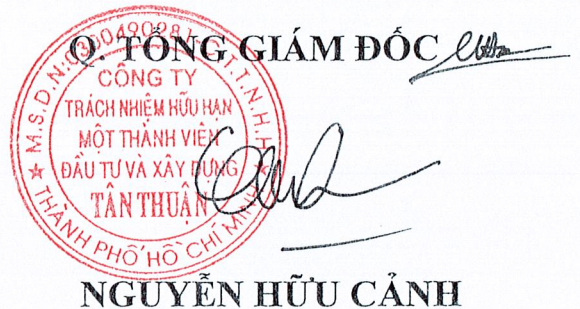 Q. TỔNG GIÁM ĐỐC
M.S.D.N:0300490981-C.T.T.N.H.H
CÔNG TY
TRÁCH NHIỆM HỮU HẠN
MỘT THÀNH VIÊN
ĐẦU TƯ VÀ XÂY DỰNG
TÂN THUẬN
THÀNH PHỐ HỒ CHÍ MINH
NGUYỄN HỮU CẢNH